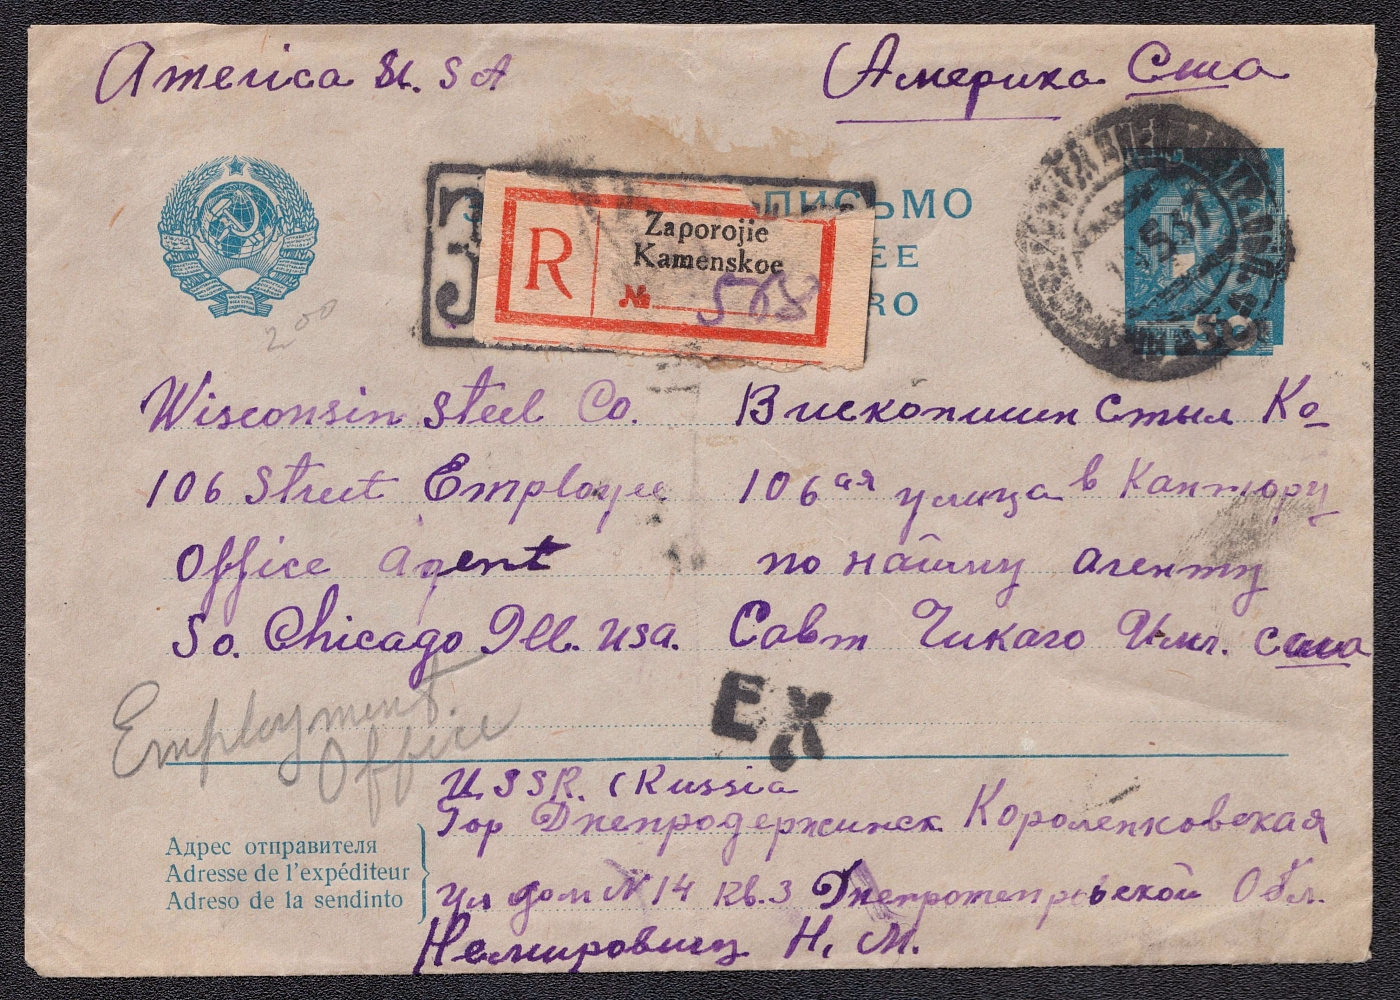 America U. S A
Америка Сша
ПИСЬМО
ÉE
RO
R
Zaporojie
Kamenskoe
№ 568
5 37
50
200
Wisconsin Steel Co.
106 Street Employee
Office agent
So. Chicago Ill. USA.
Вископишин Стыл Ко
106ая улица в Кантору
по найму агенту
Савт Чикаго Илл. сша
Employment.
Office
EX
U. S S R. ( Russia
Гор Днепродержинск Короленковская
Адрес отправителя
Adresse de l'expéditeur
Adreso de la sendinto
Ул дом N 14 кв. 3 Днепропетровской Обл.
Немировичу Н. М.